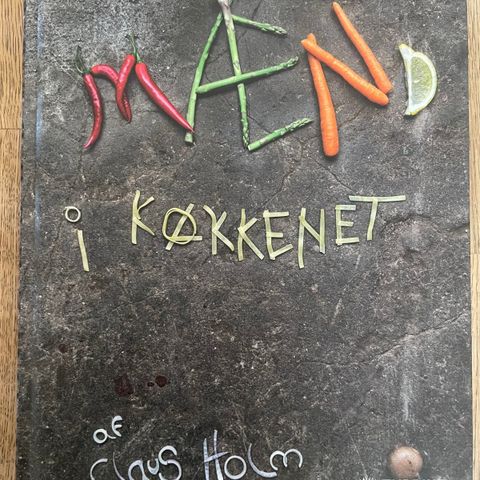 MÆND
i KØKKENET
af
Claus Holm